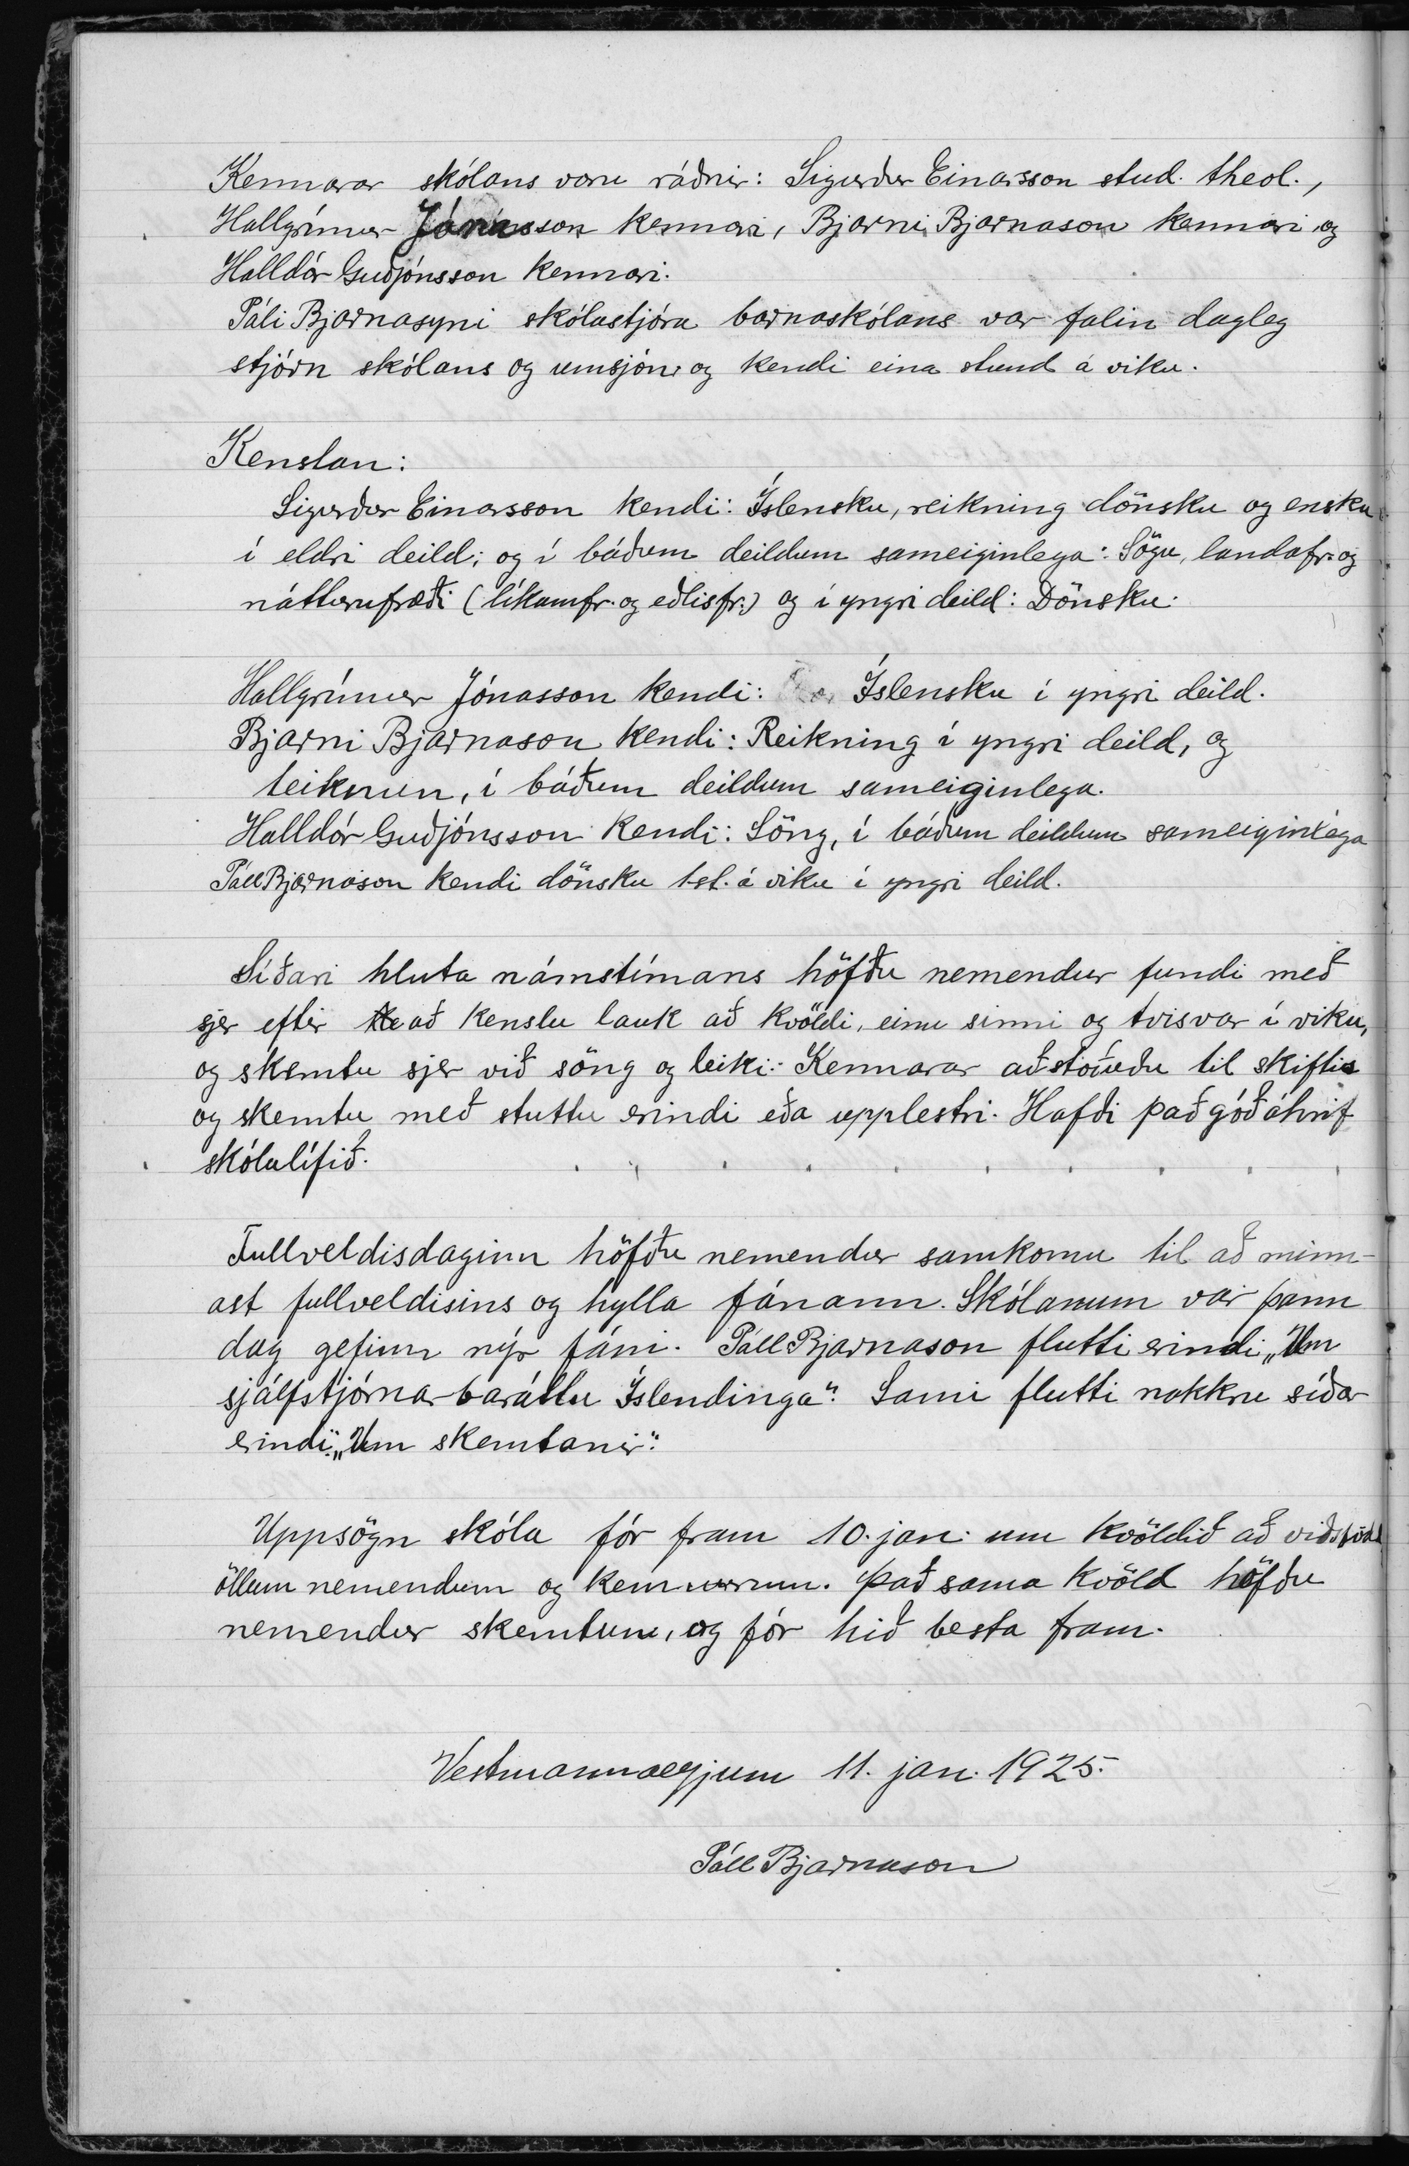 Kennarar skólans voru ráðnir: Sigurður Einarsson stud. theol.,
Hallgrímur Jónasson kennari, Bjarni Bjarnason kennari og
Halldór Guðjónsson kennari.
Páli Bjarnasyni skólastjóra barnaskólans var falin dagleg
stjórn skólans og umsjón og kendi eina stund á viku.
Kenslan:
Sigurður Einarsson kendi: Íslensku, reikning dönsku og ensku
í eldri deild; og í báðum deildum sameiginlega: Sögu, landafr. og
náttúrufræði (líkamfr. og eðlisfr.) og í yngri deild: Dönsku.
Hallgrímur Jónasson kendi: Íslensku í yngri deild.
Bjarni Bjarnason kendi: Reikning í yngri deild, og
teiknun, í báðum deildum sameiginlega.
Halldór Guðjónsson kendi: Söng, í báðum deildum sameiginlega
Páll Bjarnason kendi dönsku 1 st. á viku í yngri deild.
Síðari hluta námstímans höfðu nemendur fundi með
sjer eftir að kenslu lauk að kvöldi, einu sinni og tvisvar í viku,
og skemtu sjer við söng og leiki. Kennarar aðstoðuðu til skiftis
og skemtu með stuttu erindi eða upplestri. Hafði það góð áhrif
skólalífið.
Fullveldisdaginn höfðu nemendur samkomu til að minn-
ast fullveldisins og hylla fánann. Skólanum var þann
dag gefinn nýr fáni. Páll Bjarnason flutti erindi „Um
sjálfstjórnar baráttu Íslendinga“. Sami flutti nokkru síðar
erindi: „Um skemtanir“.
Uppsögn skóla fór fram 10. jan. um kvöldið að viðstödd
öllum nemendum og kennurum. Það sama kvöld höfðu
nemendur skemtun, og fór hið besta fram.
Vestmannaeyjum 11. jan. 1925.
Páll Bjarnason